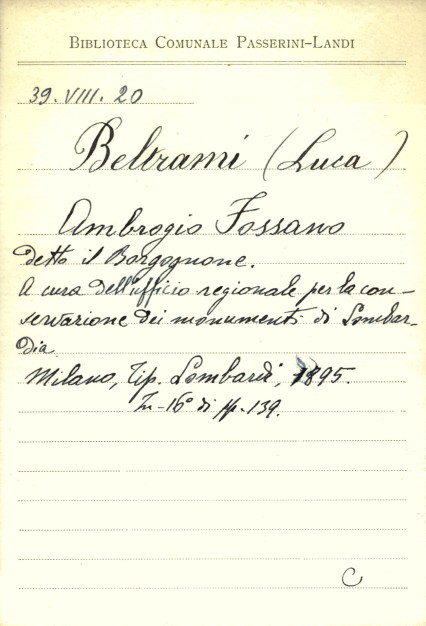 BIBLIOTECA COMUNALE PASSERINI-LANDI
39. VIII. 20
Beltrami (Luca)
Ambrogio Fossano
detto il Borgognone.
A cura dell'ufficio regionale per la con-
servazione dei monumenti di Lombar-
dia.
Milano, Tip. Lombardi, 1895.
In-16° di pp. 139.
C